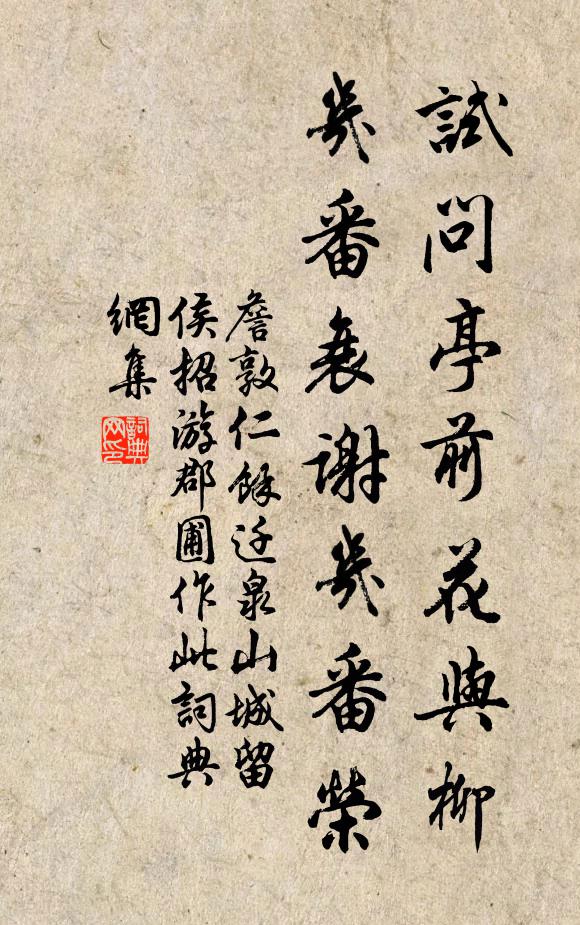 試問亭前花與柳
幾番衰謝幾番榮
詹敦仁餘迁泉山城留
侯招游郡圃作此詞典
網集
詞典
网印